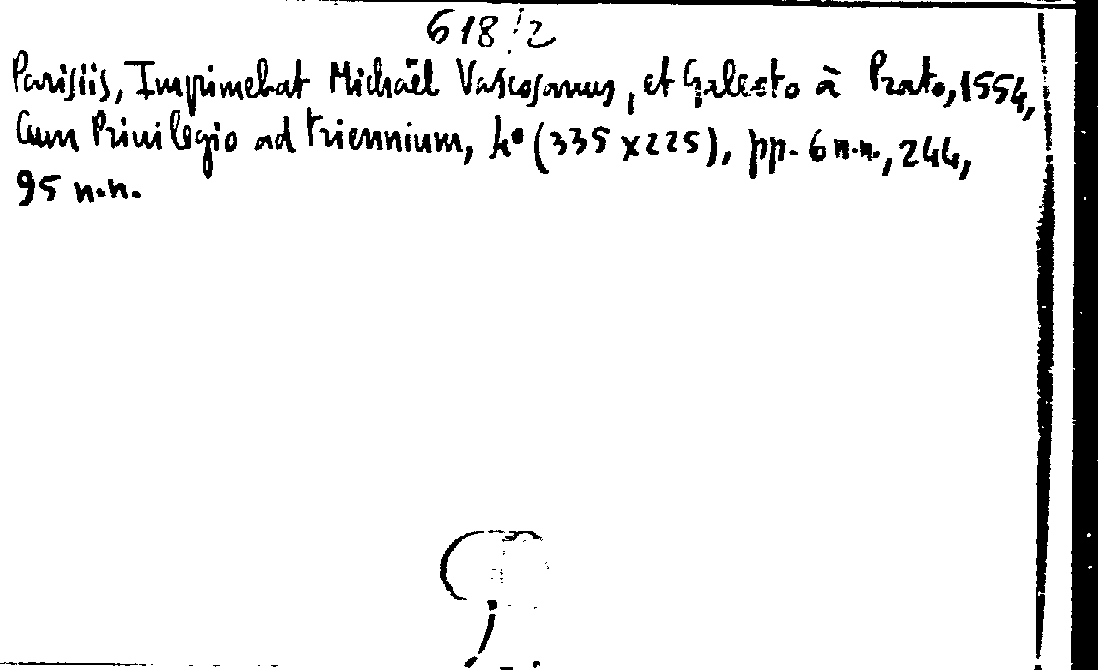 618/2
Parisiis, Imprimebat Michaël Vascosanus, et Galeoto à Prato, 1554,
Cum Privilegio ad triennium, 4° (335 x 225), pp. 6 n.n., 244,
95 n.n.